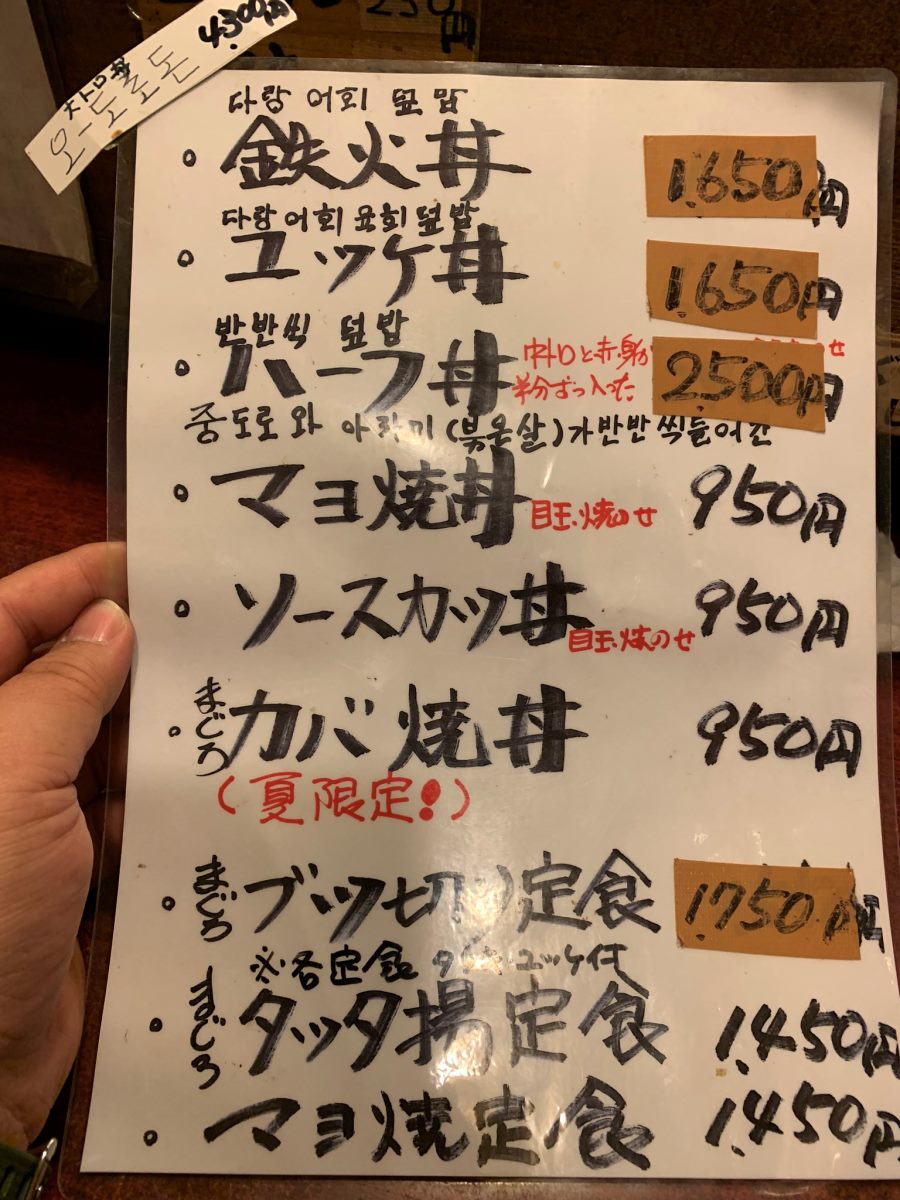 4.300円
오-도로돈
250円
다랑 어회 덮밥
鉄火丼 1.650円
다랑어회 육회덮밥
ユッケ丼 1.650円
반반씩 덮밥
ハーフ丼 2.500円
中トロと赤身が
半分ずつ入った
중도로와 아카미(붉은살)가반반씩들어간
マヨ焼丼 目玉焼のせ 950円
ソースカツ丼 目玉焼のせ 950円
まぐろカバ焼丼 950円
(夏限定!)
まぐろブツ切り定食 1.750円
※各定食 ユッケ付
まぐろタツタ揚定食 1.450円
マヨ焼定食 1.450円